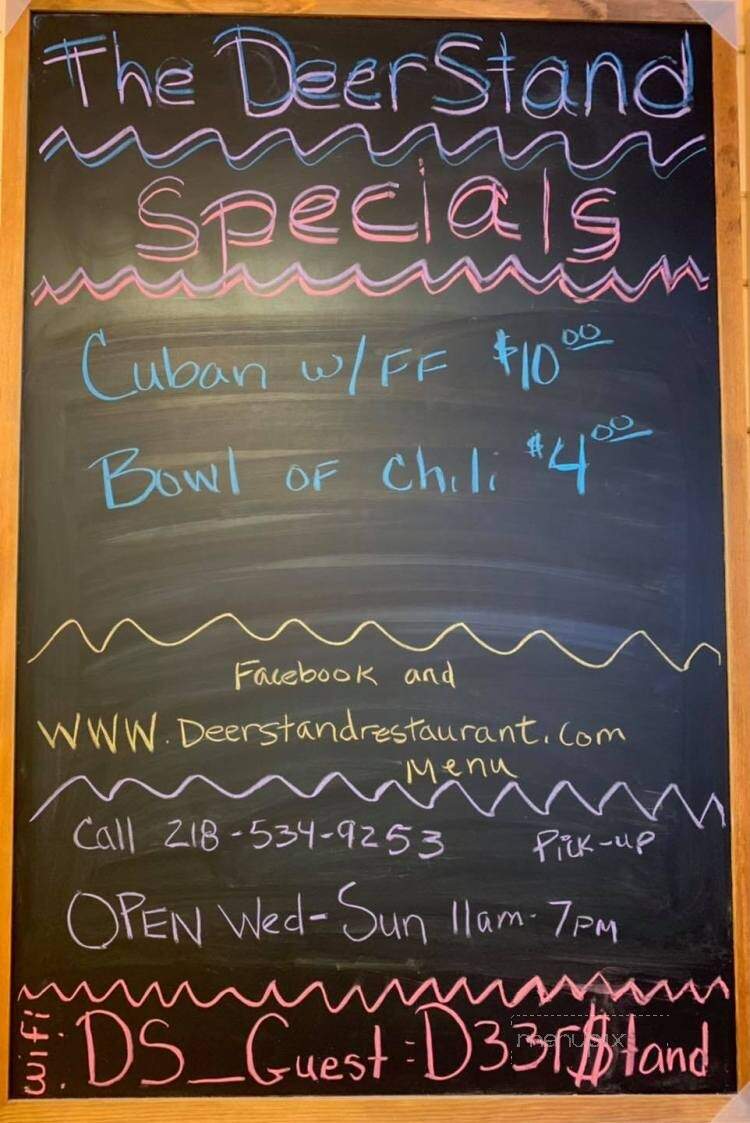 The DeerStand
Specials
Cuban w/FF $10.00
Bowl OF Chili $4.00
Facebook and
WWW.Deerstandrestaurant.com
Menu
Call 218-534-9253 Pick-up
OPEN Wed-Sun 11am-7PM
wifi: DS_Guest:D33r$tand
menusix